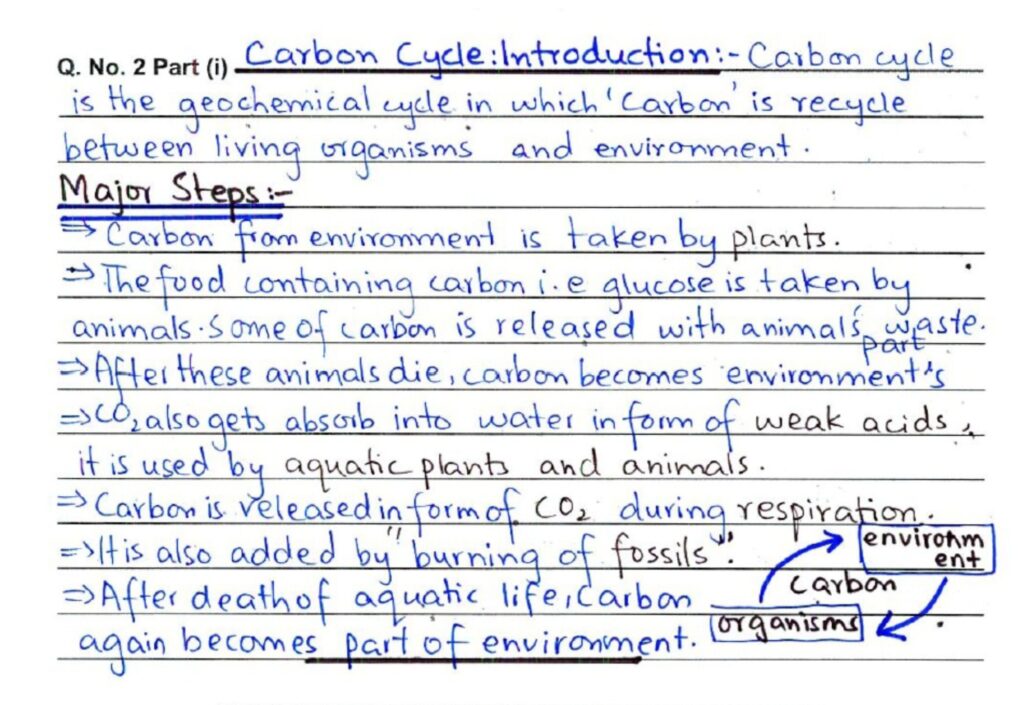 Q. No. 2 Part (i) Carbon Cycle:Introduction:- Carbon cycle
is the geochemical cycle in which 'Carbon' is recycle
between living organisms and environment.
Major Steps:-
⇒ Carbon from environment is taken by plants.
⇒ The food containing carbon i.e glucose is taken by
animals. Some of carbon is released with animal's waste.
part
⇒ After these animals die, carbon becomes environment's
⇒ CO₂ also gets absorb into water in form of weak acids,
it is used by aquatic plants and animals.
⇒ Carbon is released in form of CO₂ during respiration.
⇒ It is also added by "burning of fossils".
environm
ent
⇒ After death of aquatic life, Carbon
carbon
again becomes part of environment.
organisms